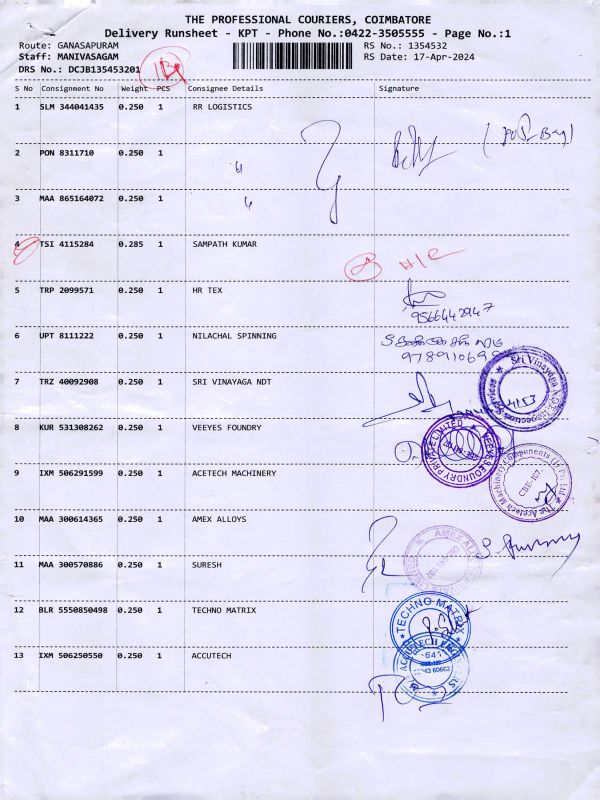 THE PROFESSIONAL COURIERS, COIMBATORE
Delivery Runsheet - KPT - Phone No.:0422-3505555 - Page No.:1
Route: GANASAPURAM RS No.: 1354532
Staff: MANIVASAGAM RS Date: 17-Apr-2024
DRS No.: DCJB135453201
S No Consignment No Weight PCS Consignee Details Signature
1 SLM 344041435 0.250 1 RR LOGISTICS
2 PON 8311710 0.250 1
3 MAA 865164072 0.250 1
4 TSI 4115284 0.285 1 SAMPATH KUMAR
5 TRP 2099571 0.250 1 HR TEX
9566442947
6 UPT 8111222 0.250 1 NILACHAL SPINNING
7 TRZ 40092908 0.250 1 SRI VINAYAGA NDT
8 KUR 531308262 0.250 1 VEEYES FOUNDRY
9 IXM 506291599 0.250 1 ACETECH MACHINERY
10 MAA 300614365 0.250 1 AMEX ALLOYS
11 MAA 300570886 0.250 1 SURESH
12 BLR 5550850498 0.250 1 TECHNO MATRIX
TECHNO MATRIX
13 IXM 506250550 0.250 1 ACCUTECH